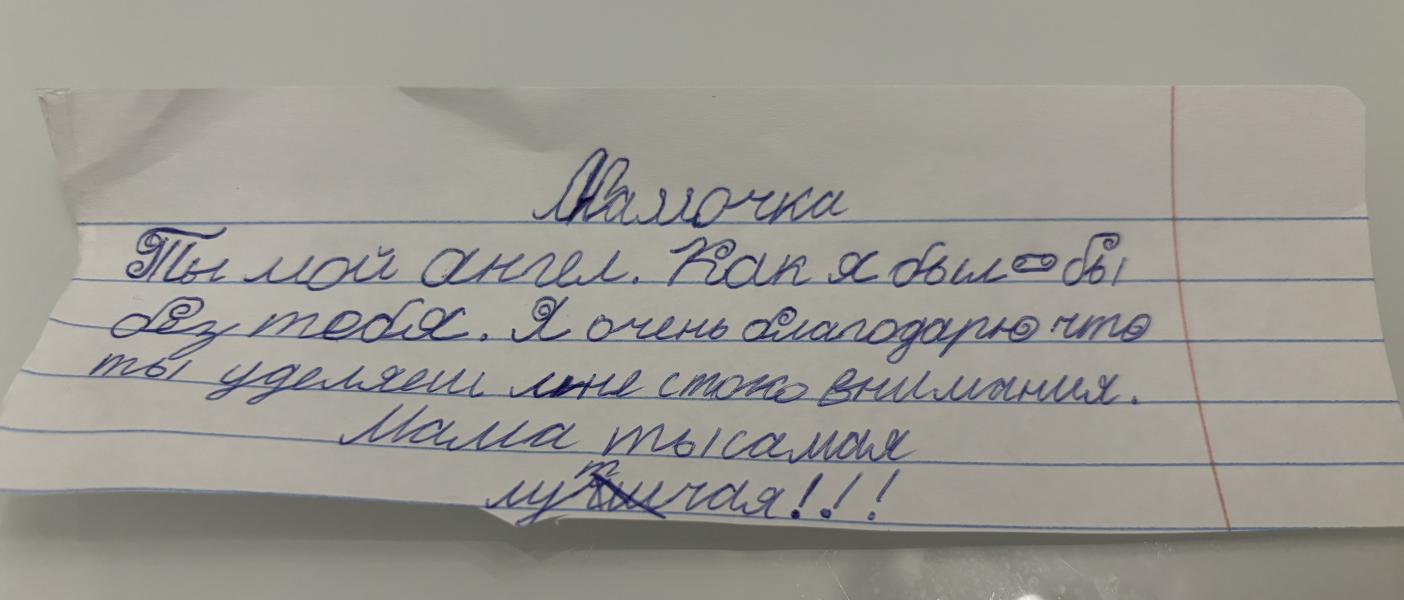 Мамочка
Ты мой ангел. Как я был бы
без тебя. Я очень благодарю что
ты уделяеш мне стоко внимания.
Мама ты самая
лутчая!!!